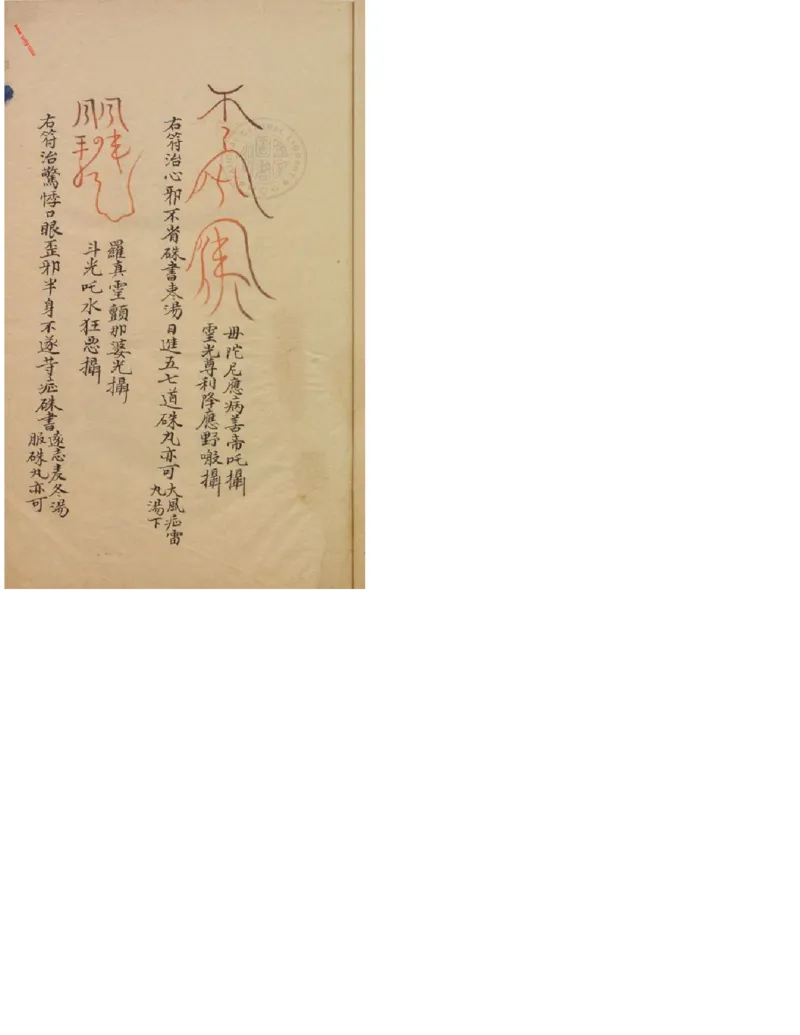 毋陀尼應病善帝吒攝
霊光尊利降應野噉攝
右符治心邪不省硃書棗湯日進五七道硃丸亦可大風症雷
丸湯下
羅真霊顫如婆光攝
斗光吒水狂惡攝
右符治驚悸口眼歪邪半身不遂等症硃書遠志麦冬湯
服硃丸亦可